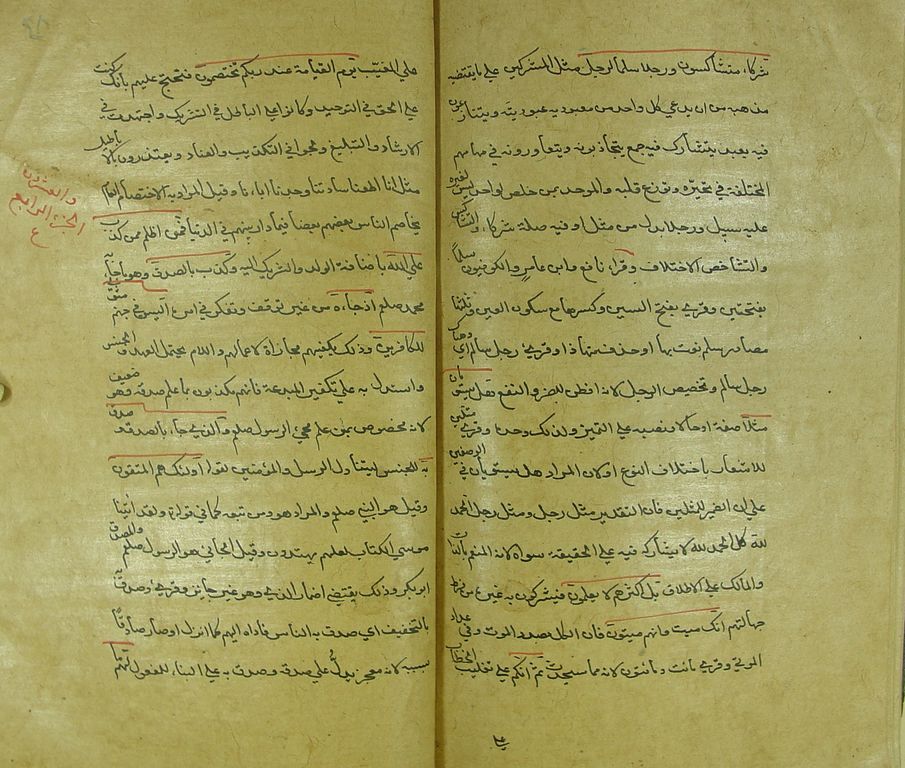 شركاء متشاكسون ورجلا سلما لرجل مثل المشرك على ما يقتضيه
مذهبه من ان يدعي كل واحد من معبوديه عبوديته ويتنازعون
فيه بعبد يتشارك فيه جمع يتجاذبونه ويتعاورونه في مهامهم
المختلفة في تحيره وتوزع قلبه والموحد بمن خلص لواحد ليس لغيره
عليه سبيل ورجلا بدل من مثلا وفيه صلة شركاء والتشاكس
والتشاخص الاختلاف وقرا نافع وابن عامر والكوفيون سلما
بفتحتين وقرئ بفتح السين وكسرها مع سكون العين وثلثها
مصادر سلم نعت بها او حذف منها ذا وقرئ رجل سالم اي وهناك
رجل سالم وتخصيص الرجل لانه افطن للضر والنفع هل يستويان
مثلا صفة او حالا ونصبه على التميز ولذلك وحده وقرئ مثلين
للاشعار باختلاف النوع او لان المراد هل يستويان في الوصفين
على ان الضمير للمثلين فان التقدير مثل رجل ومثل رجل الحمد
لله كل الحمد لله لا يشاركه فيه على الحقيقة سواه لانه المنعم بالذات
والمالك على الاطلاق بل اكثرهم لا يعلمون فيشركون به غيره من فرط
جهالتهم انك ميت وانهم ميتون فان الكل بصدد الموت وفي عداد
الموتى وقرئ مائت ومائتون لانه مما سيحدث ثم انكم على تغليب المخاطب
على الغيب يوم القيامة عند ربكم تختصمون فتحتج عليهم بانك كنت
على الحق في التوحيد وكانوا على الباطل في التشريك واجتهدت في
الارشاد والتبليغ ولجوا في التكذيب والعناد ويعتذرون بالاباطيل
مثل انا اطعنا سادتنا وجدنا اباءنا وقيل المراد به الاختصام العام
يخاصم الناس بعضهم بعضا فيما دار بينهم في الدنيا فمن اظلم ممن كذب
على الله باضافة الولد والشريك اليه وكذب بالصدق وهو ما جاء به
محمد صلعم اذ جاءه من غير توقف وتفكر في امره اليس في جهنم مثوى
للكافرين وذلك يكفيهم مجازاة لاعمالهم واللام يحتمل العهد والجنس
واستدل به على تكفير المبتدعة فانهم مكذبون بما علم صدقه وهو ضعيف
لانه مخصوص بمن علم مجئ الرسول صلعم والذي جاء بالصدق وصدق
به للجنس ليتناول الرسل والمؤمنين لقوله اولئك هم المتقون
وقيل هو النبي صلعم والمراد هو ومن تبعه كما في قوله ولقد اتينا
موسى الكتاب لعلهم يهتدون وقيل الجائي هو الرسول صلعم والمصدق
ابو بكر وذلك يقتضي اضمار الذي وهو غير جايز وقرئ وصدق
بالتخفيف اي صدق به الناس فاداه اليهم كما انزل او صار صادقا
بسببه لانه معجز يدل على صدقه وصدق به على البناء للمفعول لهم ما
الجزء الرابع
والعشرون